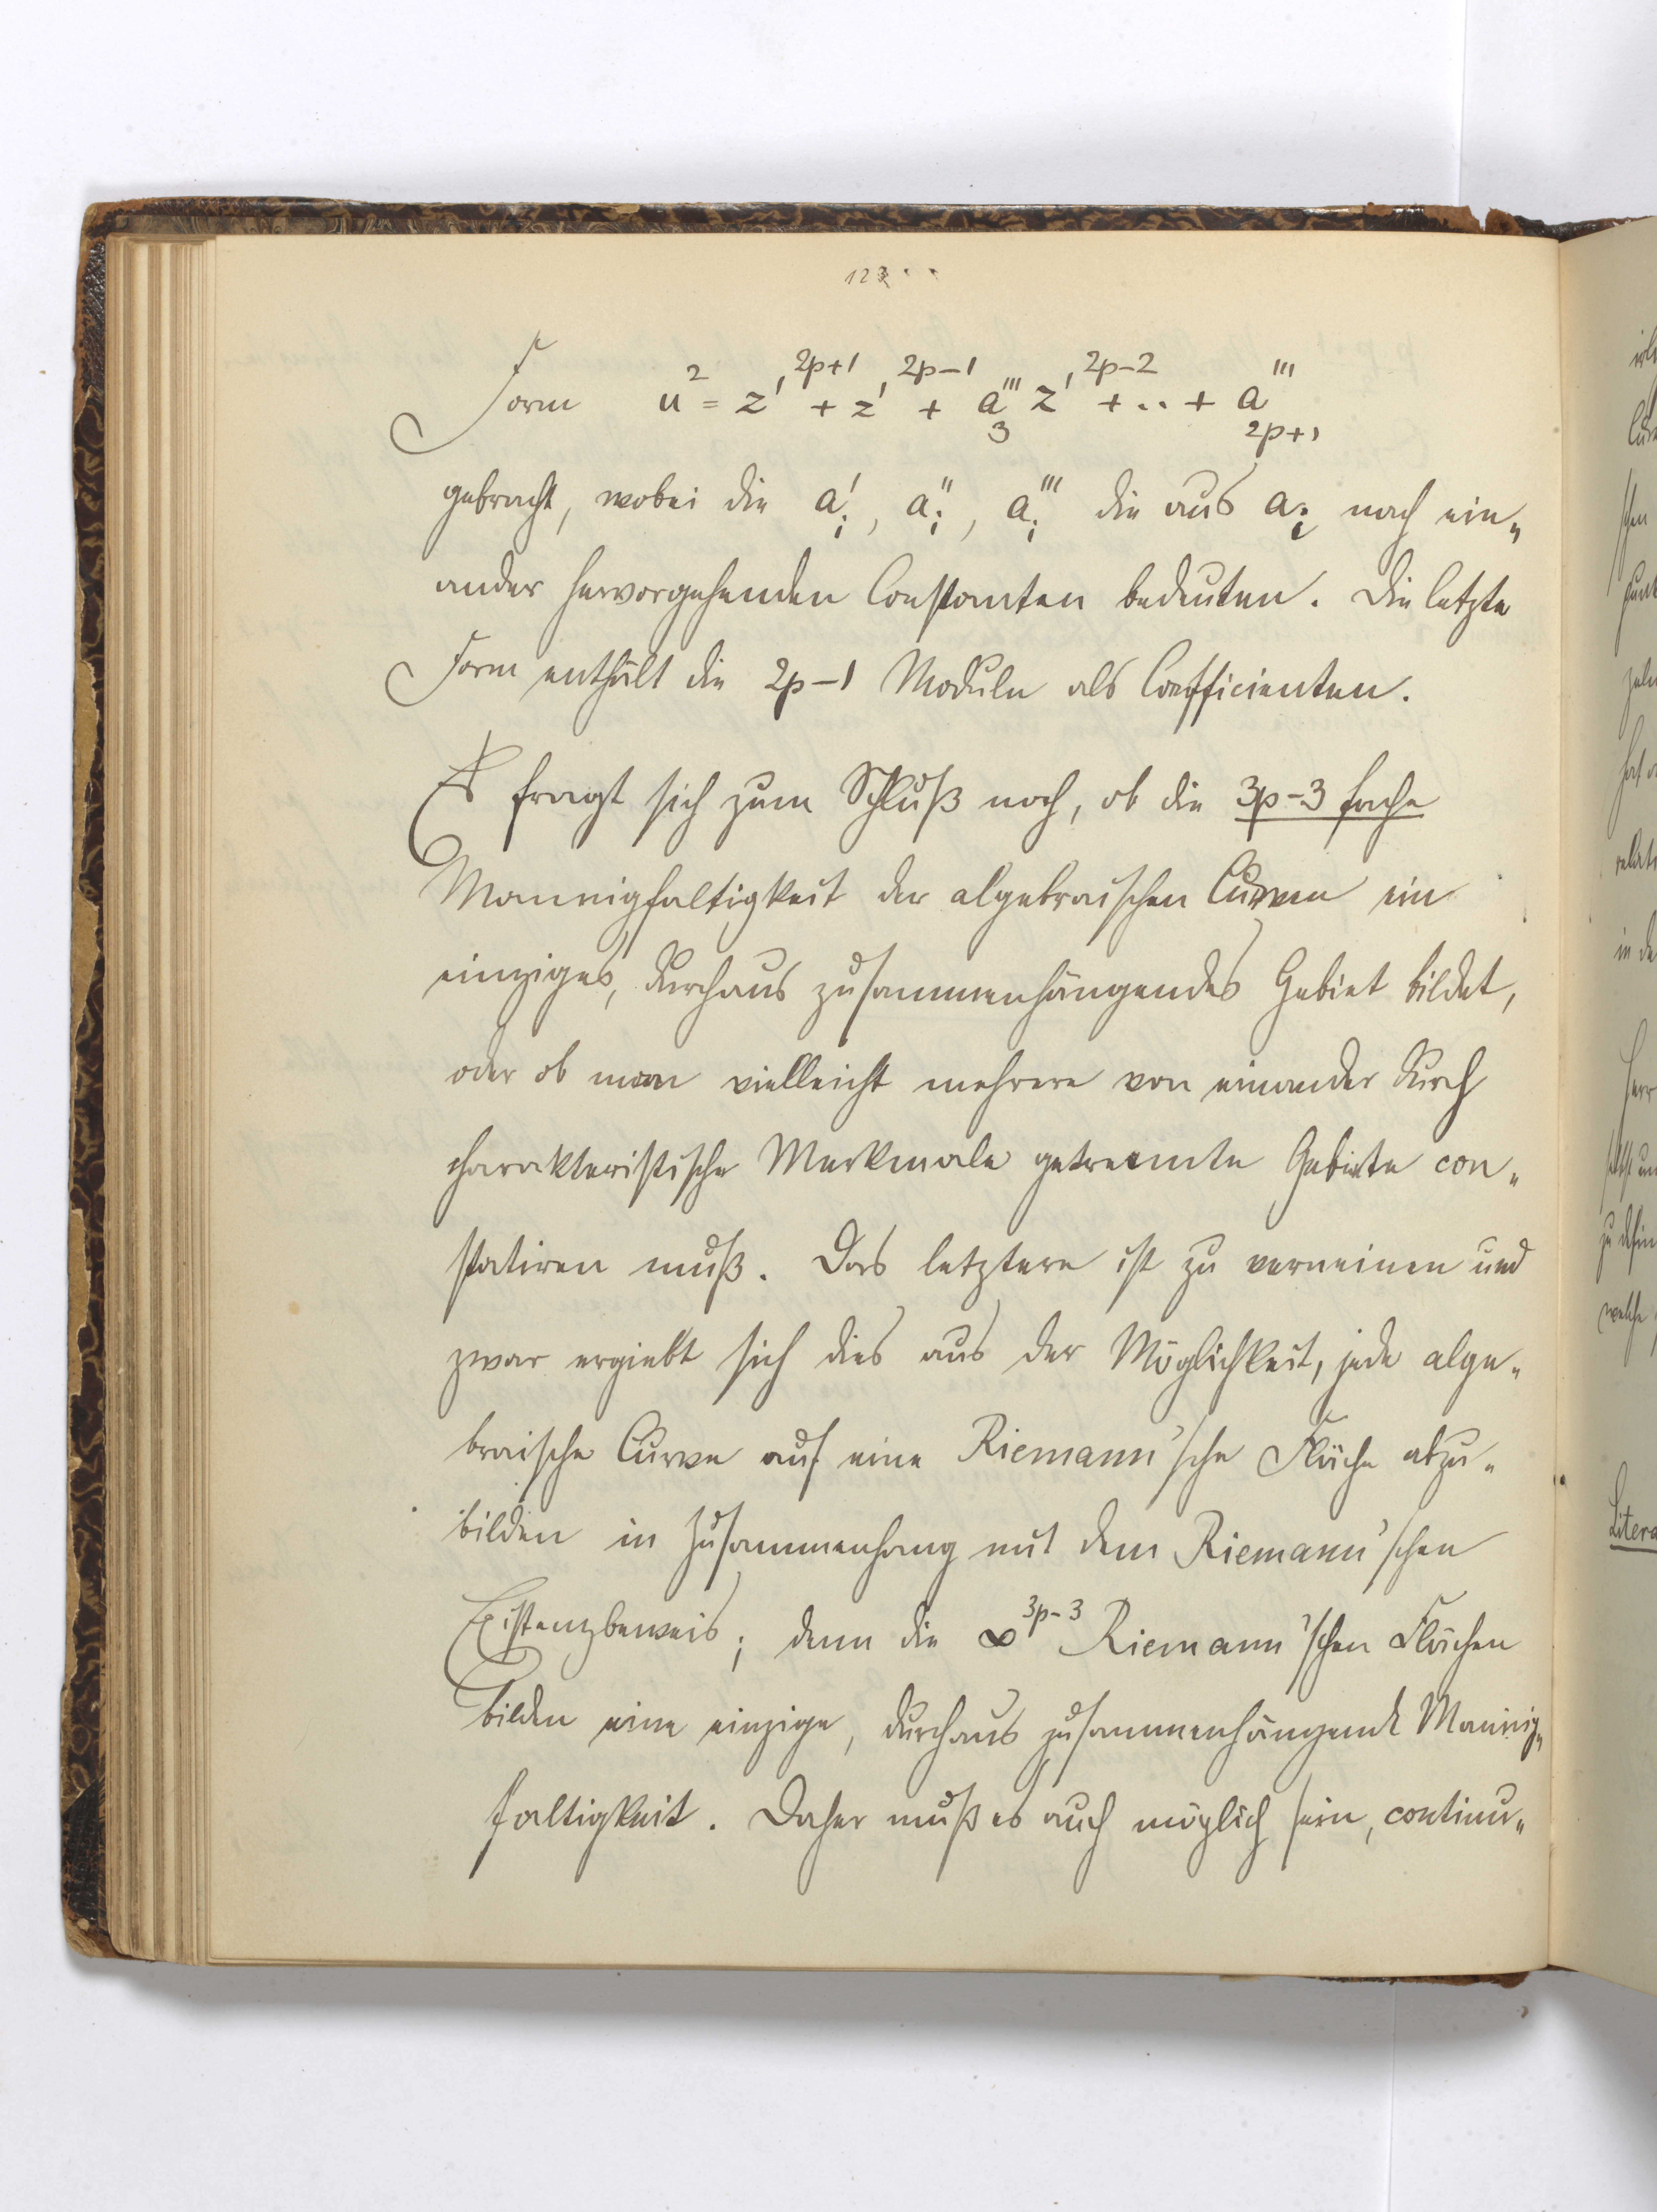 123
Form u² = z'^{2p+1} + z'^{2p-1} + a'''_3 z'^{2p-2} + .. + a'''_{2p+1}
gebracht, wobei die a'_i, a''_i, a'''_i die aus a_i nach ein„
ander hervorgehenden Constanten bedeuten. Die letzte
Form enthält die 2p-1 Moduln als Coefficienten.
Es fragt sich zum Schluß noch, ob die 3p-3 fache
Mannigfaltigkeit der algebraischen Curven ein
einziges, durchaus zusammenhängendes Gebiet bildet,
oder ob man vielleicht mehrere von einander durch
charakteristische Merkmale getrennte Gebiete con„
statiren muß. Das letztere ist zu verneinen und
zwar ergiebt sich dies aus der Möglichkeit, jede alge„
braische Curve auf eine Riemann'sche Fläche abzu„
bilden in Zusammenhang mit dem Riemann'schen
Existenzbeweis; denn die ∞^{3p-3} Riemann'schen Flächen
bilden eine einzige, durchaus zusammenhängende Mannig„
faltigkeit. Daher muß es auch möglich sein, continu„